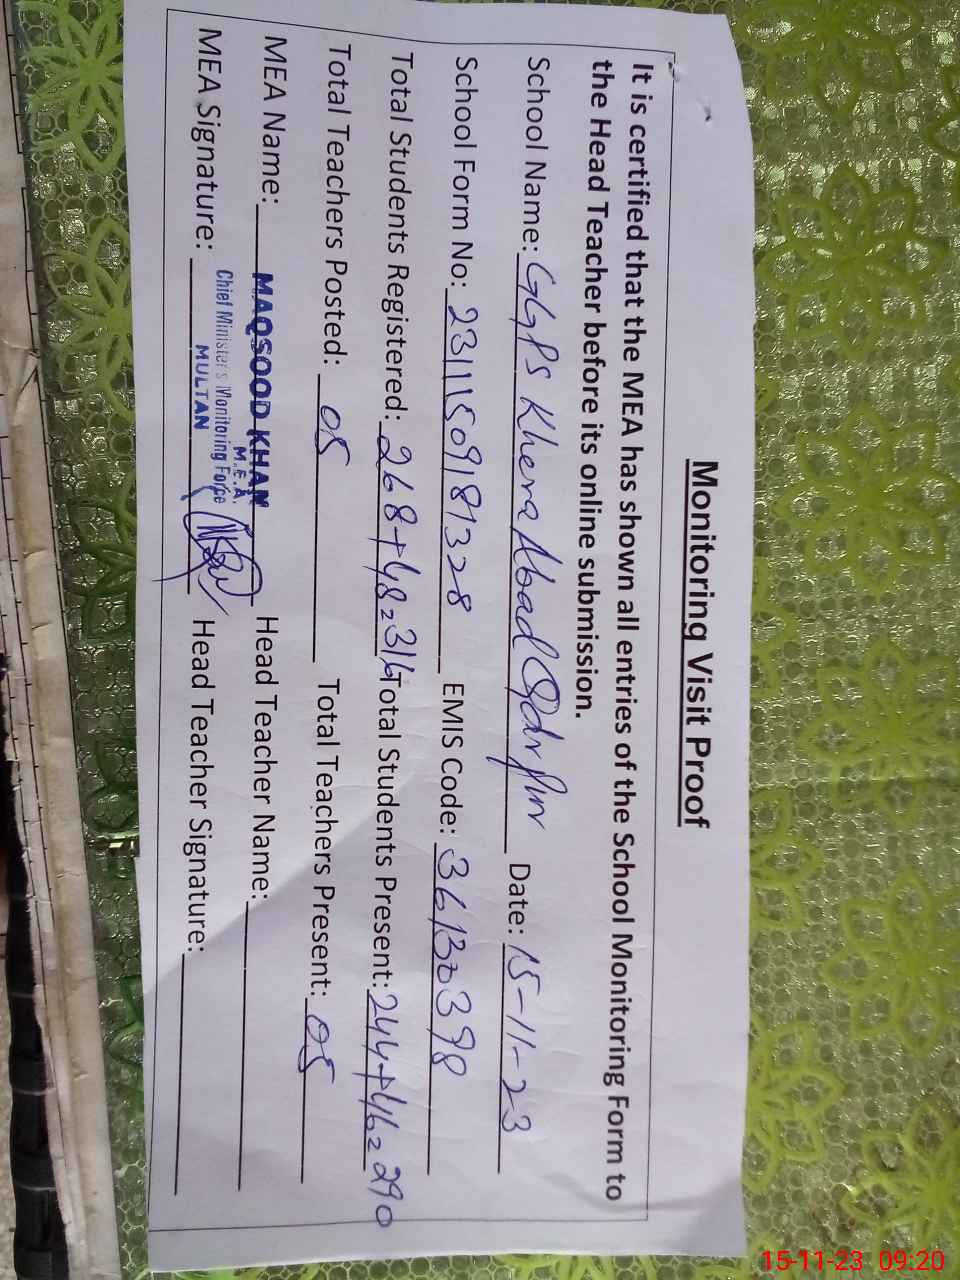 Monitoring Visit Proof
It is certified that the MEA has shown all entries of the School Monitoring Form to
the Head Teacher before its online submission.
School Name: GGPS Khera Abad Qdr Pur Date: 15-11-23
School Form No: 23111509181328 EMIS Code: 36130398
Total Students Registered: 268+48=316 Total Students Present: 244+46=290
Total Teachers Posted: 05 Total Teachers Present: 05
MEA Name: MAQSOOD KHAN Head Teacher Name:
M.E.A.
Chief Minister's Monitoring Force
MULTAN
MEA Signature: Head Teacher Signature:
15-11-23 09:20